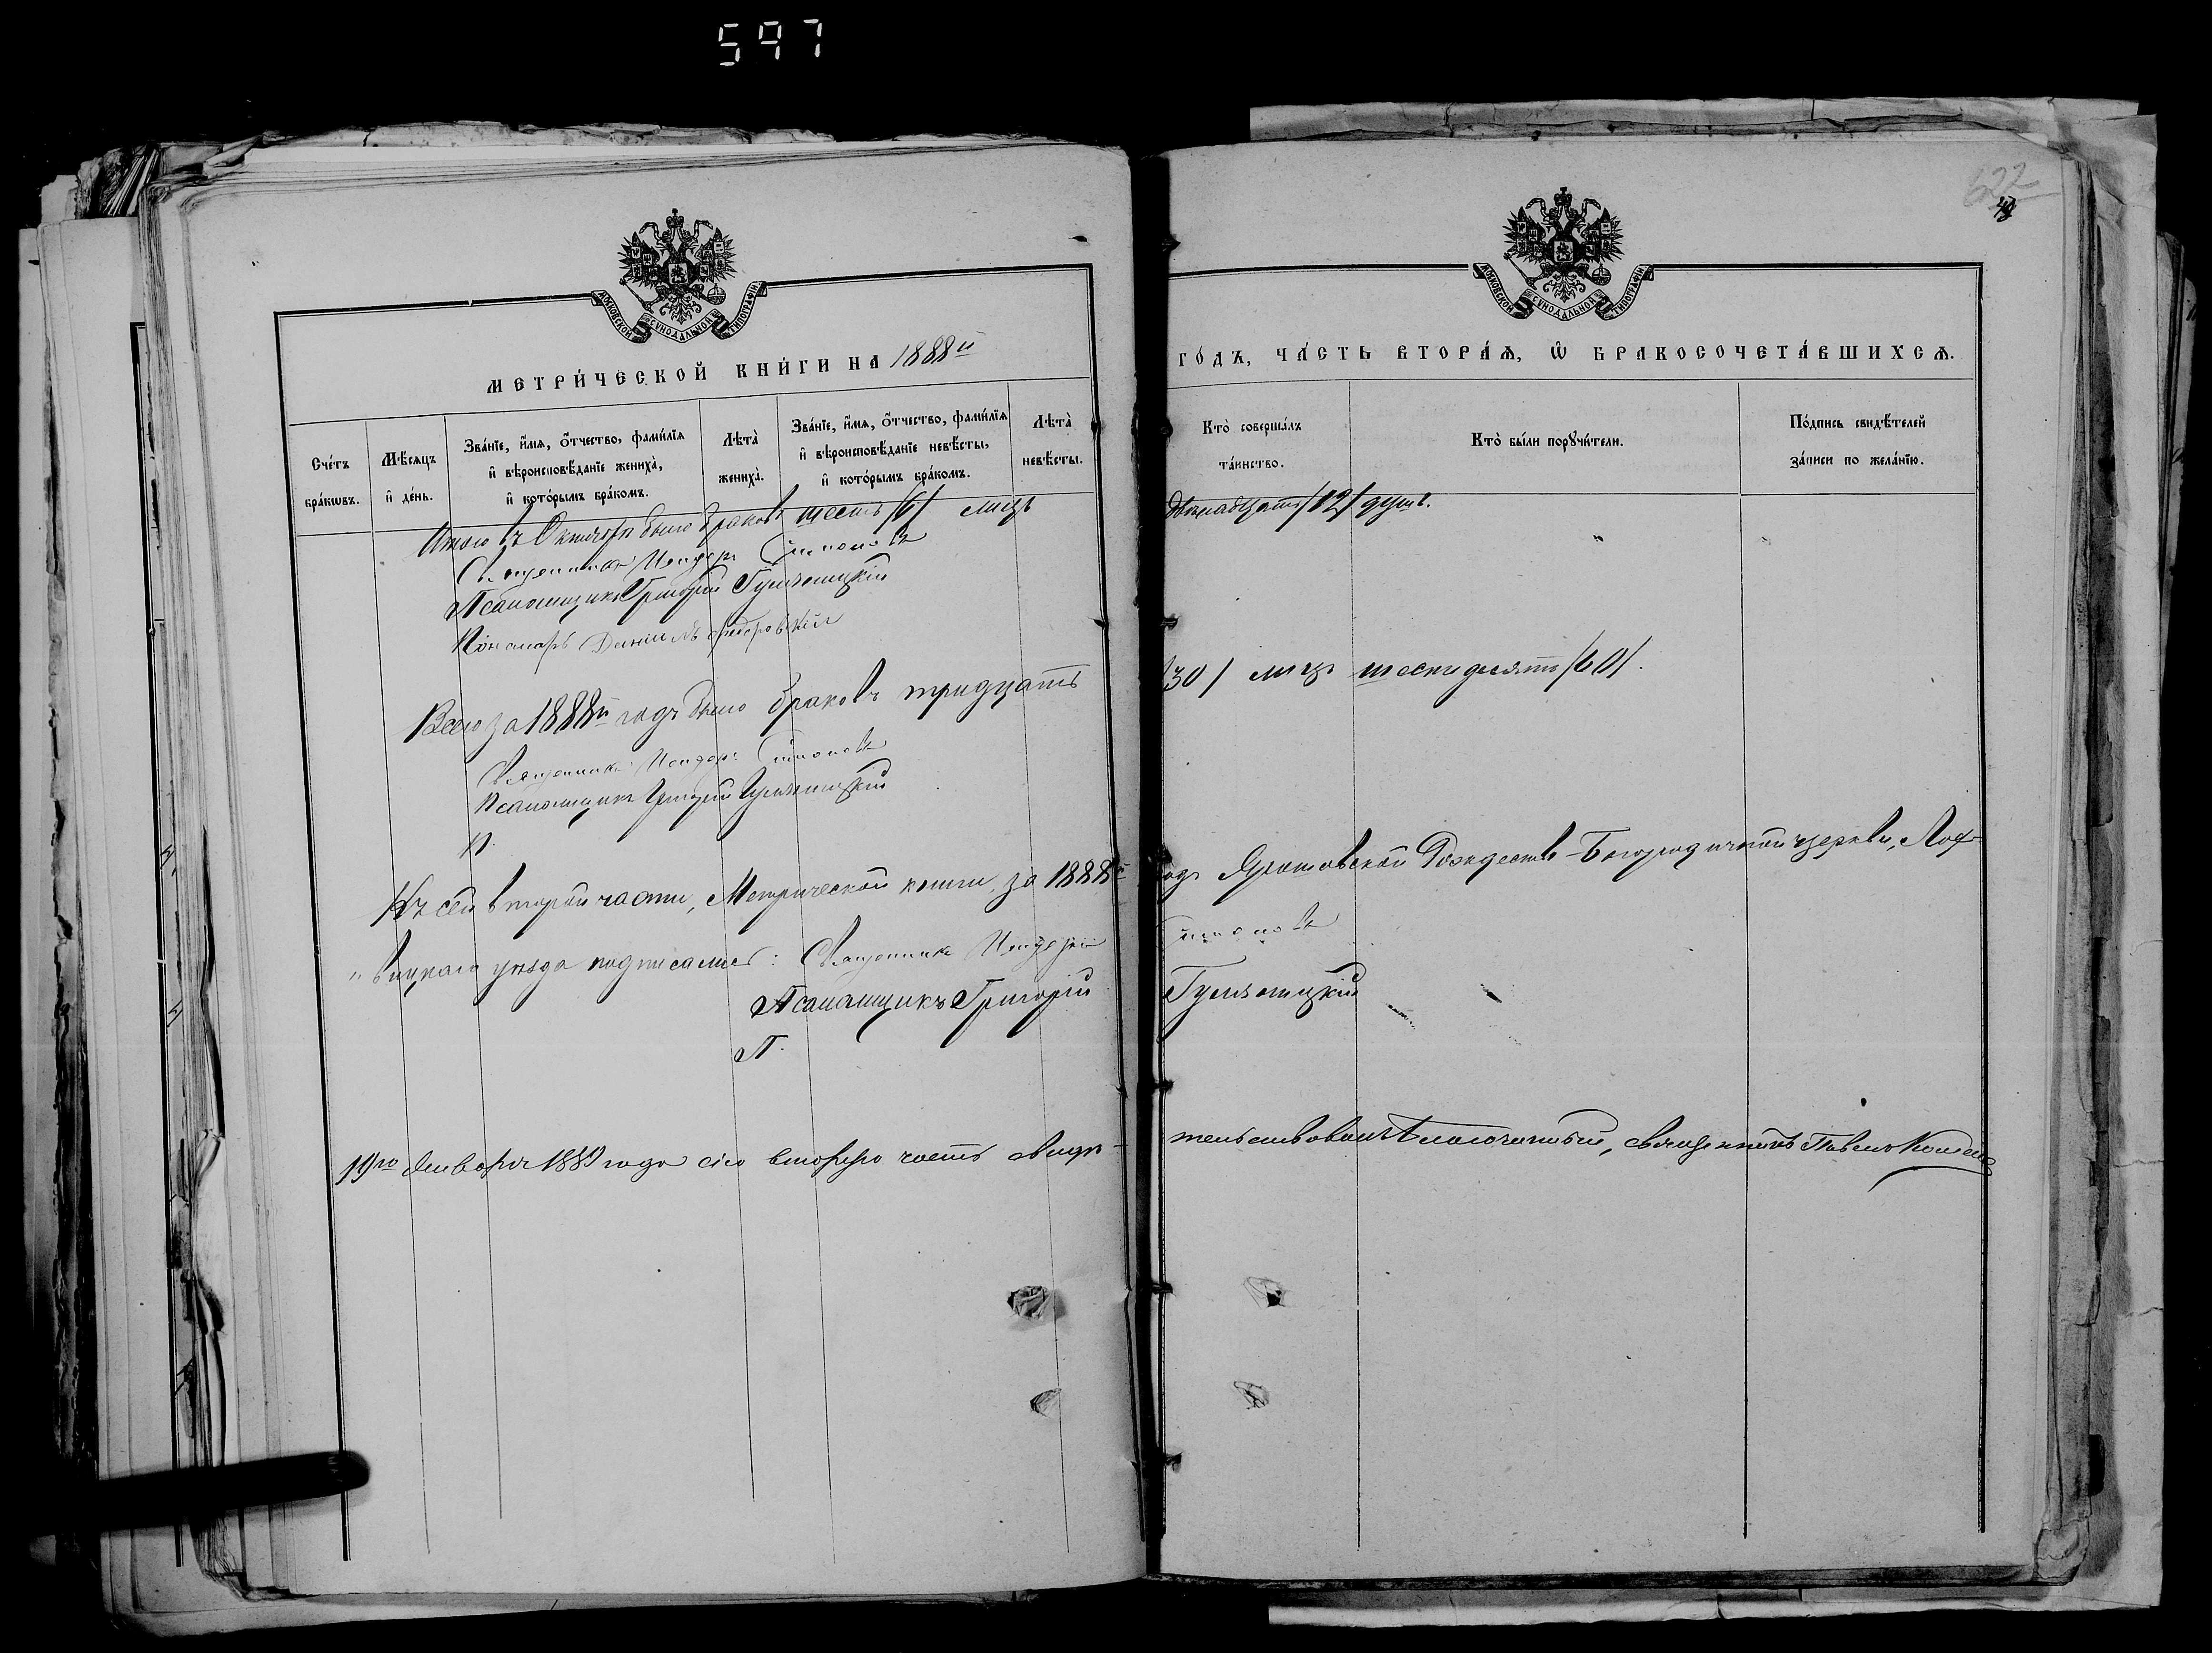 597
622
МОСКОВСКОЙ СѴНОДАЛЬНОЙ ТИПОГРАФІИ
МОСКОВСКОЙ СѴНОДАЛЬНОЙ ТИПОГРАФІИ
МЕТРИ́ЧЕСКОЙ КНИ́ГИ НА 1888й ГО́ДЪ, ЧА́СТЬ ВТОРА́Я, Ѽ БРАКОСОЧЕТА́ВШИХСЯ.
Сче́тъ бра́кωвъ.
Мѣ́сяцъ и҆ де́нь.
Зва́нїе, и҆́мя, ѻ҆́тчество, фами́лїя и҆ вѣроисповѣ́данїе жениха̀, и҆ кото́рымъ бра́комъ.
Лѣта̀ жениха̀.
Зва́нїе, и҆́мя, ѻ҆́тчество, фами́лїя и҆ вѣроисповѣ́данїе невѣ́сты, и҆ кото́рымъ бра́комъ.
Лѣта̀ невѣ́сты.
Кто̀ соверша́лъ та́инство.
Кто̀ бы́ли порꙋчи́тели.
По́дпись свидѣ́телей за́писи по жела́нїю.
Итого въ Октябрѣ было браковъ шесть /6/ лицъ двенадцать /12/ душъ.
Священникъ Симоновъ
Псаломщикъ Григорій
Пономарь Даніилъ
Всего за 1888й годъ было браковъ тридцать /30/ лицъ шестьдесятъ /60/.
Священникъ Симоновъ
Псаломщикъ Григорій
П.
Къ сей второй части, Метрической книги, за 1888й годъ Рождество-Богородичной церкви, Лох-
"вицкаго уѣзда подписались: Священникъ Симоновъ
Псаломщикъ Григорій
П.
19го Января 1889 года сію вторую часть свидѣ- тельствовалъ Благочинный, священникъ Павелъ